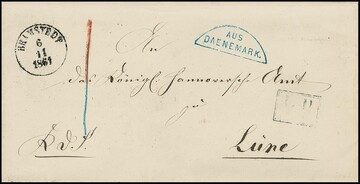 BRAMSTEDT
6
11
1861
AUS
DAENEMARK.
An
das Königl. Hannoversche Amt
zu
Lüne